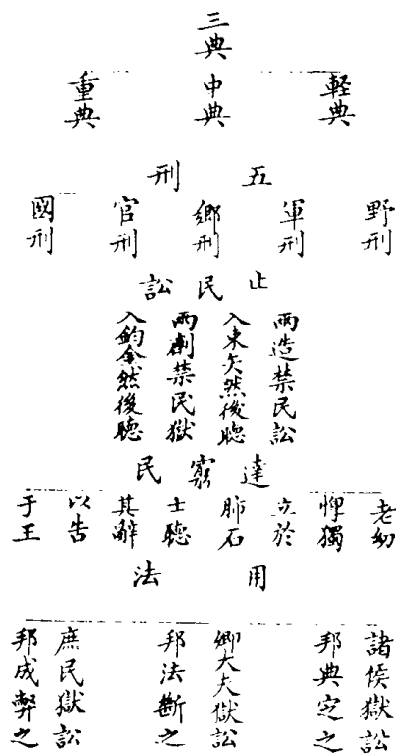 三典
軽典
中典
重典
五刑
野刑
軍刑
鄉刑
官刑
國刑
止民訟
兩造禁民訟
入束矢然後聽
兩劑禁民獄
入鈞金然後聽
達窮民
老幼
惸獨
立於
肺石
士聽
其辭
以告
于王
用法
諸侯獄訟
邦典定之
卿大夫獄訟
邦法斷之
庶民獄訟
邦成弊之